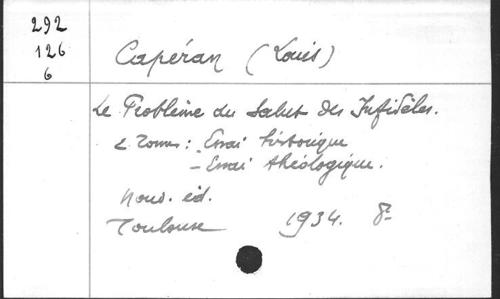 292
126
6
Capéran (Louis)
Le Problème du Salut des Infidèles.
2 Tomes : - Essai historique
- Essai théologique.
Nouv. éd.
Toulouse 1934. 8°